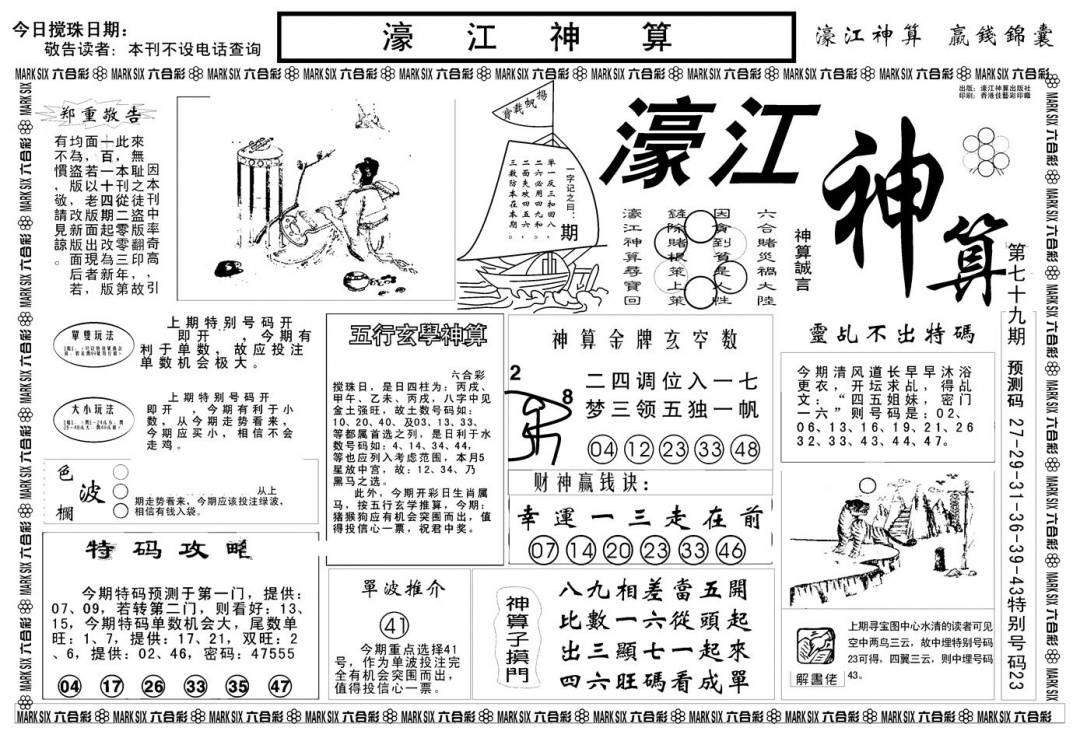 今日搅珠日期：
敬告读者：本刊不设电话查询
濠江神算
濠江神算 贏錢錦囊
MARK SIX 六合彩 MARK SIX 六合彩 MARK SIX 六合彩 MARK SIX 六合彩 MARK SIX 六合彩 MARK SIX 六合彩 MARK SIX 六合彩 MARK SIX 六合彩 MARK SIX 六合彩 MARK SIX 六合彩 MARK SIX 六合彩
出版：濠江神算出版社
印刷：香港佳藝彩印廠
郑重敬告
有均面十此來
不為，百，無
慣盜若一本耻因
，版以十刊之本
敬，老四從徒刊
請改版期二盜中
見新面起零版率
諒版出改零翻奇
。面現為三印高
后者新年，，
若，版第故引
揚帆載寶
一字记之曰：期
單一反三和四八
二六必用四九和
二面夹攻四五六
三数防本在本期
濠江
神算
六合賭災禍大陸
因貪到貧是人性
鏟除賭根策上策
濠江神算尋寶回
神算誠言
第七十九期
預测码 27-29-31-36-39-43特别号码23
單雙玩法
上期特别号码开
即开 ，今期有
利于单数，故应投注
单数机会极大。
大小玩法
上期特别号码开
即开 ，今期有利于小
数，从今期走势看来，
今期应买小，相信不会
走鸡。
色波欄
从上
期走势看来，今期应该投注绿波，
相信有钱入袋。
特码攻略
今期特码预测于第一门，提供：
07、09，若转第二门，则看好：13、
15，今期特码单数机会大，尾数单
旺：1、7，提供：17、21，双旺：2
、6，提供：02、46，密码：47555
04 17 26 33 35 47
五行玄學神算
六合彩
搅珠日，是日四柱为：丙戌、
甲午、乙未、丙戌，八字中见
金土强旺，故土数号码如：
10、20、40、及03、13、33、
等都属首选之列，是日利于水
数号码如：4、14、34、44，
等也应列入考虑范围，本月5
星放中宫，故：12、34、乃
黑马之选。
此外，今期开彩日生肖属
马，按五行玄学推算，今期：
猪猴狗应有机会突围而出，值
得投信心一票，祝君中奖。
單波推介
41
今期重点选择41
号，作为单波投注完
全有机会突围而出，
值得投信心一票。
神算金牌玄空数
2
8
二四调位入一七
梦三领五独一帆
04 12 23 33 48
财神赢钱诀：
幸運一三走在前
07 14 20 23 33 46
神算子摸門
八九相差當五開
比數一六從頭起
出三顯七一起來
四六旺碼看成單
靈乩不出特碼
今期清风道长早早沐浴
更衣，开坛求乩，得乩
文：“四五姐妹，密门
一六”则号码是：02、
06、13、16、19、21、26
32、33、43、44、47。
解畫佬
上期寻宝图中心水清的读者可见
空中两鸟三云，故中埋特别号码
23可得，四翼三云，则中埋号码
43。
MARK SIX 六合彩 MARK SIX 六合彩 MARK SIX 六合彩 MARK SIX 六合彩 MARK SIX 六合彩 MARK SIX 六合彩 MARK SIX 六合彩 MARK SIX 六合彩 MARK SIX 六合彩 MARK SIX 六合彩 MARK SIX 六合彩